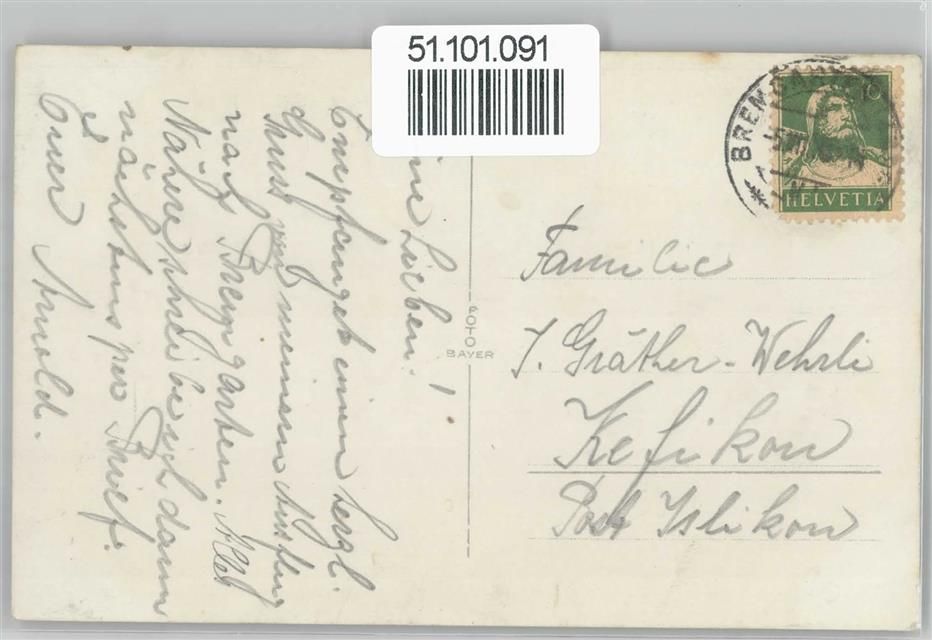 51.101.091
BREMGARTEN
10
HELVETIA
FOTO
BAYER
Familie
J. Gräther-Wehrli
Kefikon
Post Islikon
Lieben!
Empfanget einen herzl.
Gruss von meinem Ausflug
nach Bremgarten.
Nähere schreibe ich dann
nächstens per Brief.
Euer Arnold.